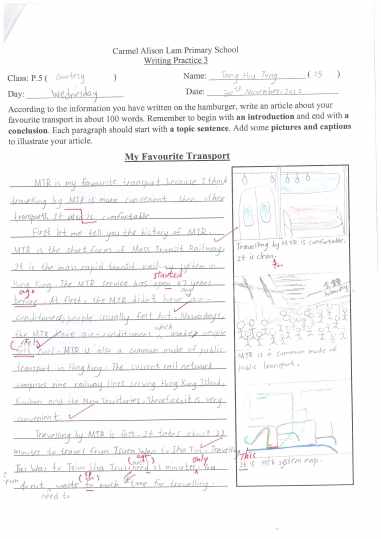 Carmel Alison Lam Primary School
Writing Practice 3
Class: P.5 ( Courtesy ) Name: Tang Hiu Tung ( 25 )
Day: Wednesday Date: 20th November, 2012
According to the information you have written on the hamburger, write an article about your
favourite transport in about 100 words. Remember to begin with an introduction and end with a
conclusion. Each paragraph should start with a topic sentence. Add some pictures and captions
to illustrate your article.
My Favourite Transport
MTR is my favourite transport because I think
travelling by MTR is more convenient then other
transport. It also is comfortable
First let me tell you the history of MTR.
MTR is the short form of Mass Transit Railway.
It is the mass rapid transit railway system in
started
Hong Kong. The MTR service has open 47 years
ago
before. At first, the MTR didn't have air-
and
conditioners, people usually felt hot. Nowadays,
which
the MTR have air-conditioners makes people
felt cool. MTR is also a common mode of public
transport in Hong Kong. The current rail network
comprises nine railway lines serving Hong Kong Island,
Kowloon and the New Territories. Therefore, it is very
convenient.
Travelling by MTR is fast. It takes about 27
minutes to travel from Tsuen Wan to Sha Tin. Travelling
only
Tai Wai to Tsim Sha Tsui need 22 minutes. You
from
do not waste to much time for travelling.
need to
Travelling by MTR is comfortable.
It is clean.
MTR is a common mode of
public transport.
This
It is MTR system map.